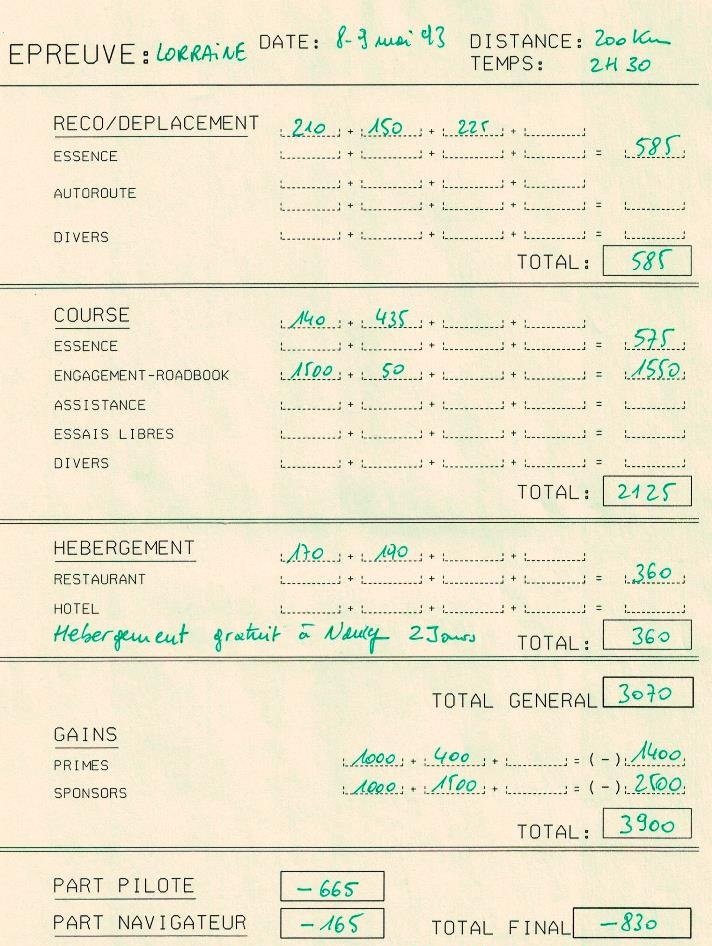 EPREUVE: LORRAINE DATE: 8-9 mai 93 DISTANCE: 200 Km
TEMPS: 2H30
RECO/DEPLACEMENT 210 + 150 + 225 +
ESSENCE + + + = 585
AUTOROUTE + + +
+ + + =
DIVERS + + + =
TOTAL: 585
COURSE 140 + 435 + +
ESSENCE + + + = 575
ENGAGEMENT-ROADBOOK 1500 + 50 + + = 1550
ASSISTANCE + + + =
ESSAIS LIBRES + + + =
DIVERS + + + =
TOTAL: 2125
HEBERGEMENT 170 + 190 + +
RESTAURANT + + + = 360
HOTEL + + + =
Hebergement gratuit à Nancy 2 Jours TOTAL: 360
TOTAL GENERAL 3070
GAINS
PRIMES 1000 + 400 + = (-) 1400
SPONSORS 1000 + 1500 + = (-) 2500
TOTAL: 3900
PART PILOTE -665
PART NAVIGATEUR -165 TOTAL FINAL -830